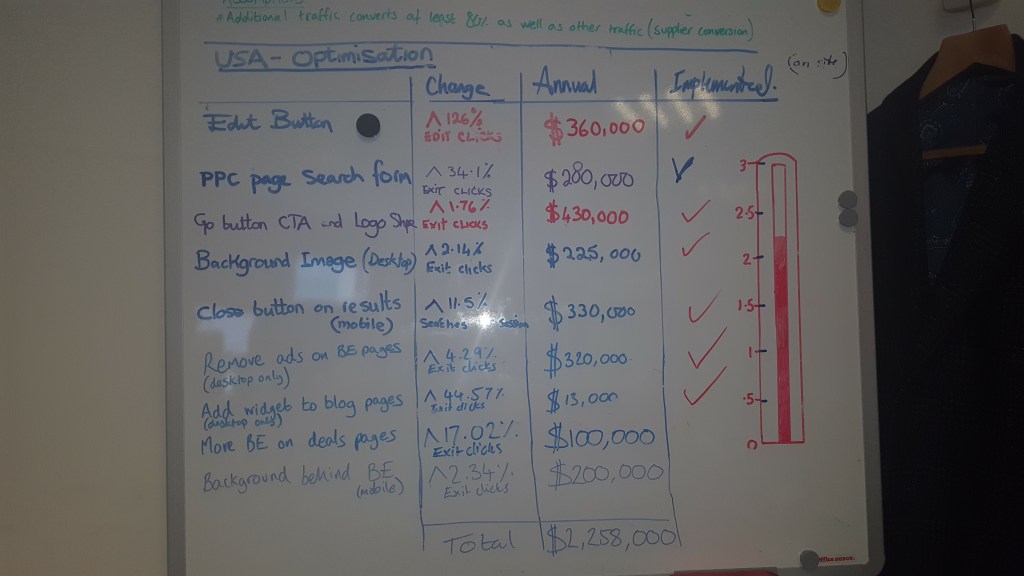 Assumptions
* Additional traffic converts at least 80% as well as other traffic (supplier conversion)
USA - Optimisation
Change Annual Implemented. (on site)
Edit Button ^ 126% EDIT CLICKS $360,000 ✓
PPC page Search form ^ 34.1% EXIT CLICKS $280,000 ✓
Go button CTA and Logo Shpe ^ 1.76% EXIT CLICKS $430,000 ✓
Background Image (Desktop) ^ 2.14% Exit clicks $225,000 ✓
Close button on results (mobile) ^ 11.5% Searches Session $330,000 ✓
Remove ads on BE pages (desktop only) ^ 4.29% Exit clicks $320,000 ✓
Add widget to blog pages (desktop only) ^ 44.57% Exit clicks $13,000 ✓
More BE on deals pages ^ 17.02% Exit clicks $100,000
Background behind BE (mobile) ^ 2.34% Exit clicks $200,000
Total $2,258,000
3
2.5
2
1.5
1
.5
0